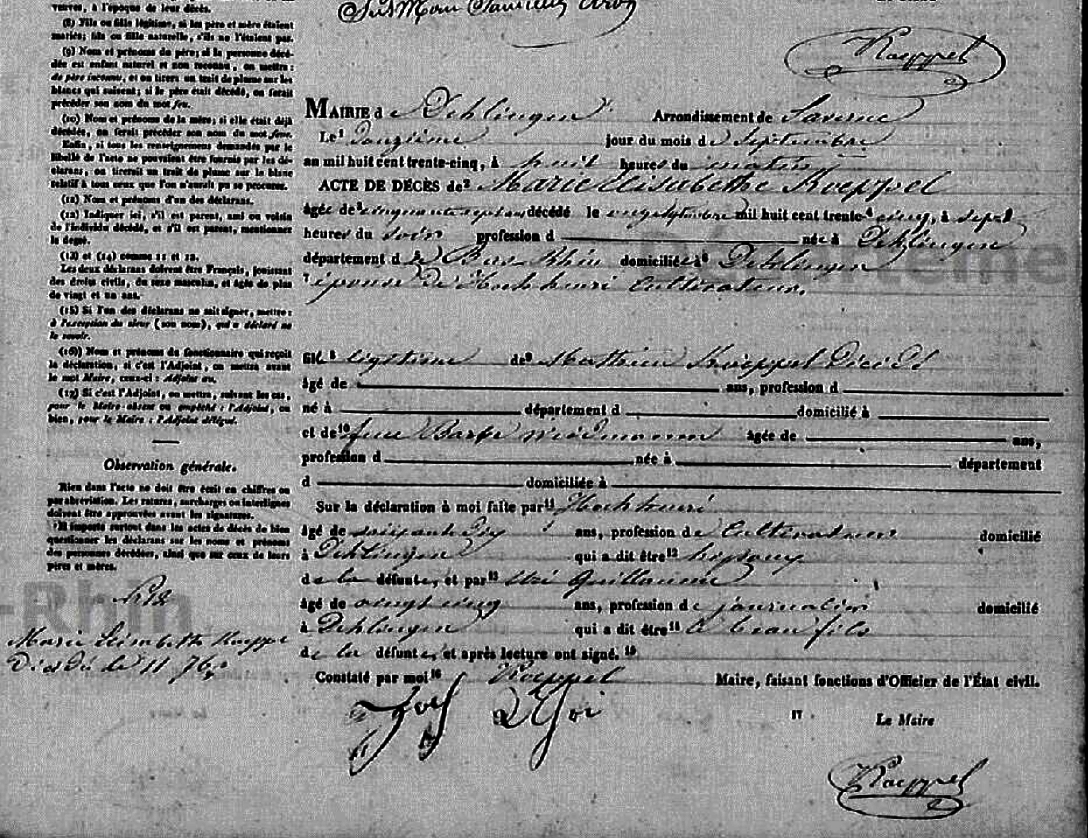 veuves, à l'époque de leur décès.
(8) Fils ou fille légitime, si les père et mère étaient
mariés; fils ou fille naturelle, s'ils ne l'étaient pas.
(9) Nom et prénoms du père; si la personne décé-
dée est enfant naturel et non reconnu, on mettra:
de père inconnu, et on tirera un trait de plume sur les
blancs qui suivent; si le père était décédé, on ferait
précéder son nom du mot feu.
(10) Nom et prénoms de la mère; si elle était déjà
décédée, on ferait précéder son nom du mot feue.
Enfin, si tous les renseignemens demandés par le
libellé de l'acte ne pouvaient être fournis par les dé-
clarans, on tirerait un trait de plume sur le blanc
relatif à tous ceux que l'on n'aurait pu se procurer.
(11) Nom et prénoms d'un des déclarans.
(12) Indiquer ici, s'il est parent, ami ou voisin
de l'individu décédé, et s'il est parent, mentionner
le degré.
(13) et (14) comme 11 et 12.
Les deux déclarans doivent être Français, jouissant
des droits civils, du sexe masculin, et âgés de plus
de vingt et un ans.
(15) Si l'un des déclarans ne sait signer, mettre:
à l'exception du sieur (son nom), qui a déclaré ne
le savoir.
(16) Nom et prénoms du fonctionnaire qui reçoit
la déclaration, si c'est l'Adjoint, on mettra avant
le mot Maire, ceux-ci: Adjoint au.
(17) Si c'est l'Adjoint, on mettra, suivant les cas,
pour le Maire absent ou empêché: l'Adjoint, ou
bien, pour le Maire: l'Adjoint délégué.
Observation générale.
Rien dans l'acte ne doit être écrit en chiffres ou
par abréviation. Les ratures, surcharges ou interlignes
doivent être approuvées avant les signatures.
Il importe surtout dans les actes de décès de bien
questionner les déclarans sur les noms et prénoms
des personnes décédées, ainsi que sur ceux de leurs
pères et mères.
-Rhin
Marie Elisabeth Koeppel
Décédé le 11 7bre
Koeppel
MAIRIE de Dehlingen Arrondissement de Saverne
Le 1 douzième jour du mois de Septembre
an mil huit cent trente-cinq, à huit heures du matin
ACTE DE DÉCÈS de 2 Marie Elisabethe Koeppel
âgée de 3 cinquante sept ans décédé le onze septembre mil huit cent trente-cinq, à sept
heures du soir profession d née à Dehlingen
département de Bas-Rhin domiciliée à 6 Dehlingen
7 épouse de Hoch henri Cultivateur.
fille 8 légitime de 9 Mathieu Koeppel Décédé
âgé de ans, profession d
né à département d domicilié à
et de 10 feue Barbe Wiedmann âgée de ans,
profession d née à département
d domiciliée à
Sur la déclaration à moi faite par 11 Hoch henri
âgé de soixante dix ans, profession de Cultivateur domicilié
à Dehlingen qui a dit être 12 l'epoux
de la défunte, et par 13 Guillaume
âgé de vingt cinq ans, profession de journalier domicilié
à Dehlingen qui a dit être 14 beau fils
de la défunte, et après lecture ont signé. 15
Constaté par moi 16 Koeppel Maire, faisant fonctions d'Officier de l'État civil.
17 Le Maire
Koeppel